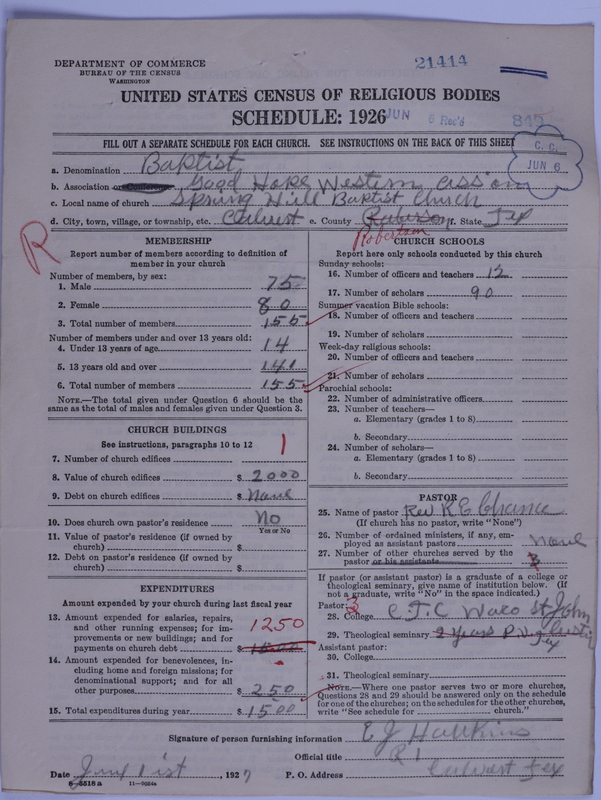 21414
DEPARTMENT OF COMMERCE
BUREAU OF THE CENSUS
WASHINGTON
UNITED STATES CENSUS OF RELIGIOUS BODIES
SCHEDULE: 1926
JUN 6 Rec'd
FILL OUT A SEPARATE SCHEDULE FOR EACH CHURCH. SEE INSTRUCTIONS ON THE BACK OF THIS SHEET
C. C.
JUN 6
a. Denomination Baptist
b. Association or Conference Good Hope Western ass'on
c. Local name of church Spring Hill Baptist Church
d. City, town, village, or township, etc. Calvert e. County Robertson f. State Tex
Robertson
R
MEMBERSHIP
Report number of members according to definition of member in your church
Number of members, by sex:
1. Male 75
2. Female 80
3. Total number of members 155
Number of members under and over 13 years old:
4. Under 13 years of age 14
5. 13 years old and over 141
6. Total number of members 155
NOTE.—The total given under Question 6 should be the same as the total of males and females given under Question 3.
CHURCH BUILDINGS
See instructions, paragraphs 10 to 12
7. Number of church edifices 1
8. Value of church edifices $ 2000
9. Debt on church edifices $ None
10. Does church own pastor's residence No
Yes or No
11. Value of pastor's residence (if owned by church) $
12. Debt on pastor's residence (if owned by church) $
EXPENDITURES
Amount expended by your church during last fiscal year
13. Amount expended for salaries, repairs, and other running expenses; for improvements or new buildings; and for payments on church debt $ 1250
14. Amount expended for benevolences, including home and foreign missions; for denominational support; and for all other purposes $ 250
15. Total expenditures during year $ 1500
CHURCH SCHOOLS
Report here only schools conducted by this church
Sunday schools:
16. Number of officers and teachers 12
17. Number of scholars 90
Summer vacation Bible schools:
18. Number of officers and teachers
19. Number of scholars
Week-day religious schools:
20. Number of officers and teachers
21. Number of scholars
Parochial schools:
22. Number of administrative officers
23. Number of teachers—
a. Elementary (grades 1 to 8)
b. Secondary
24. Number of scholars—
a. Elementary (grades 1 to 8)
b. Secondary
PASTOR
25. Name of pastor Rev R. E. Chance
(If church has no pastor, write "None")
26. Number of ordained ministers, if any, employed as assistant pastors None
27. Number of other churches served by the pastor or his assistants 3
If pastor (or assistant pastor) is a graduate of a college or theological seminary, give name of institution below. (If not a graduate, write "No" in the space indicated.)
Pastor: 3
28. College Waco St John
29. Theological seminary 2 Years Austin Tex
Assistant pastor:
30. College
31. Theological seminary
NOTE.—Where one pastor serves two or more churches, Questions 28 and 29 should be answered only on the schedule for one of the churches; on the schedules for the other churches, write "See schedule for church."
Signature of person furnishing information E J Hawkins
Official title R 1
Date June 1ist, 1927 P. O. Address Calvert Tex
8-5518 a